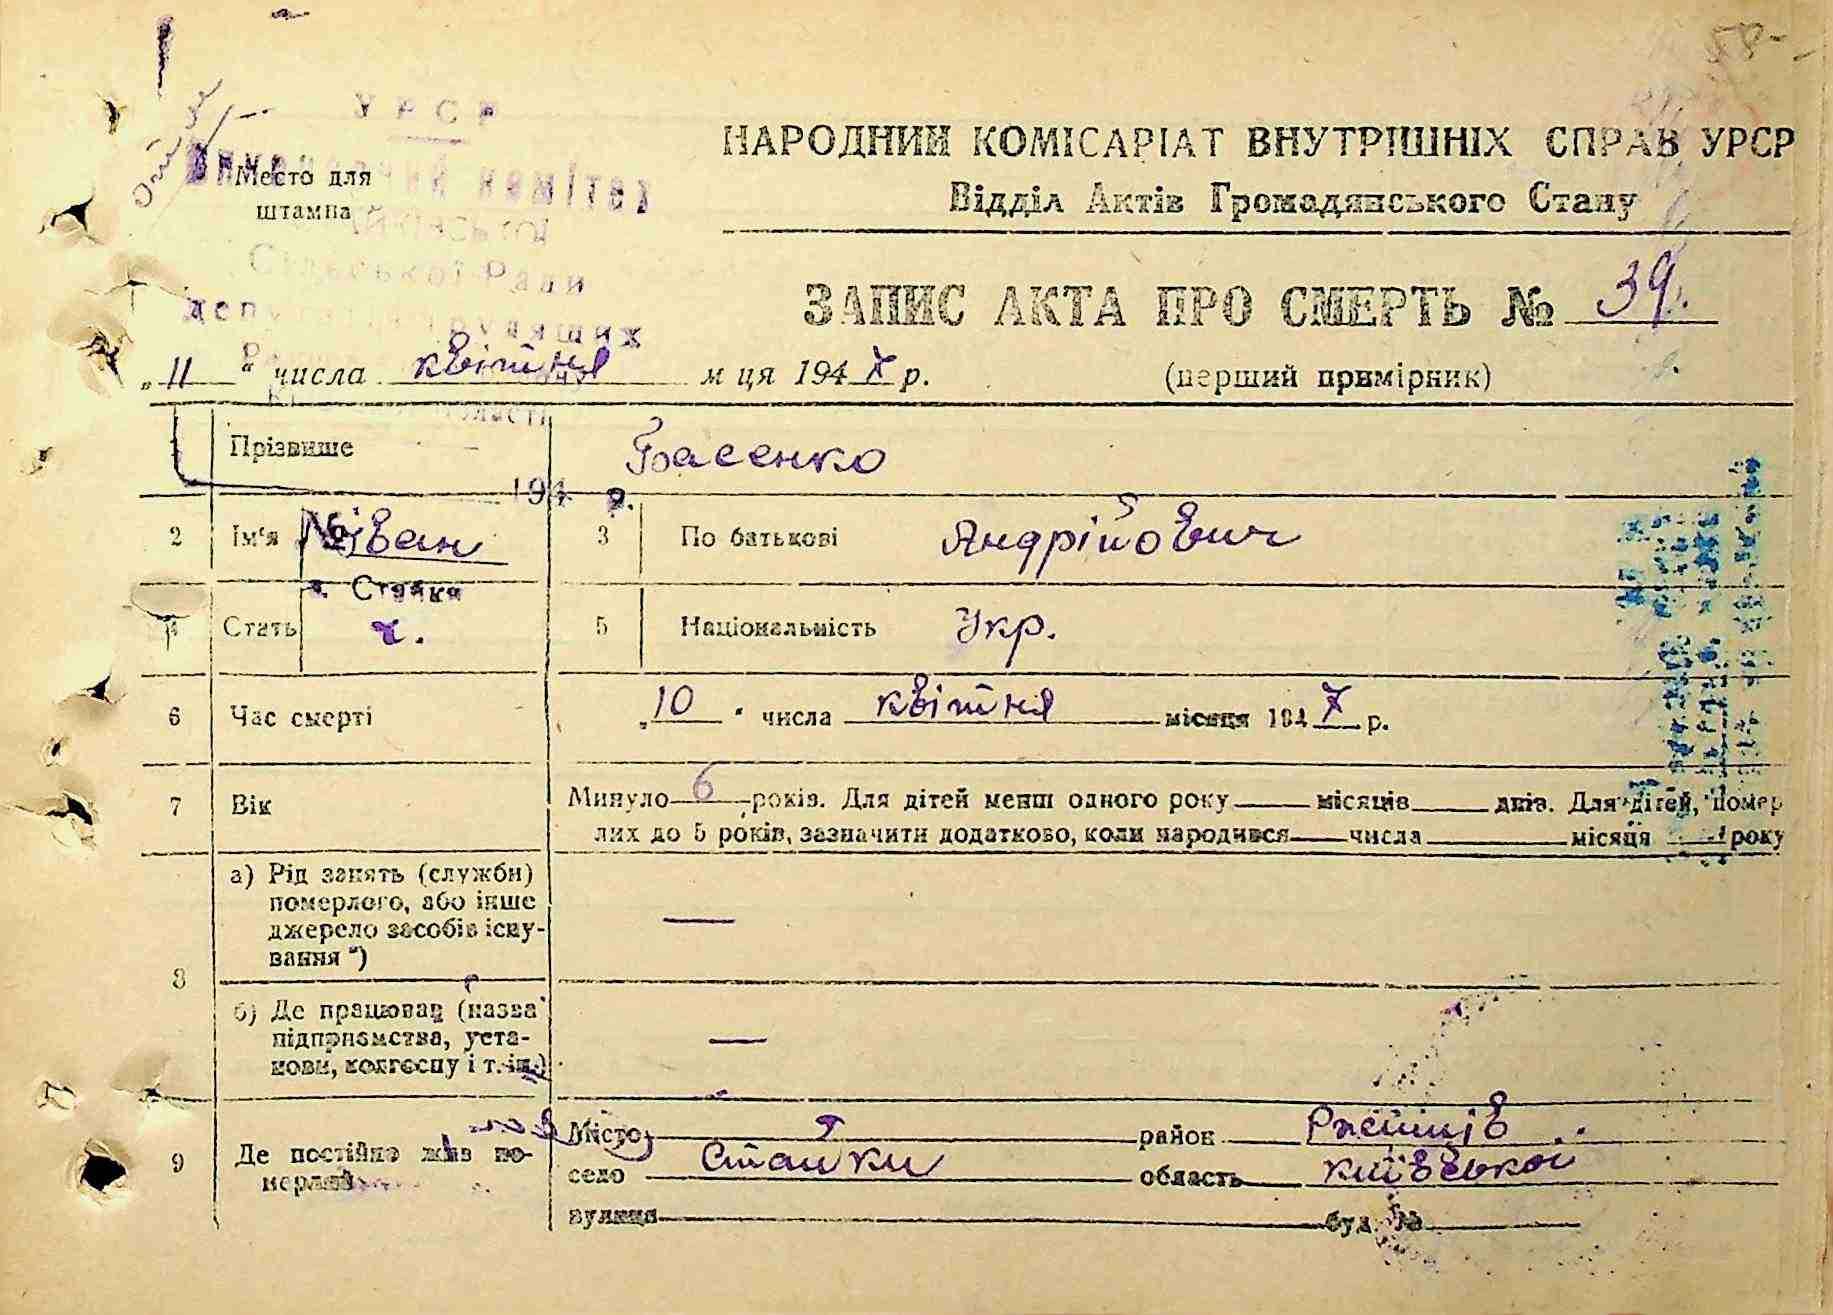 58-
УРСР
Виконавчий комітет
Место для
штампа
Сільської Ради
депутатів трудящих
НАРОДНИЙ КОМІСАРІАТ ВНУТРІШНІХ СПРАВ УРСР
Відділ Актів Громадянського Стану
ЗАПИС АКТА ПРО СМЕРТЬ № 39.
„11“ числа квітня м ця 1947 р. (перший примірник)
1 Прізвище
194 р.
2 Ім'я № Іван 3 По батькові Андрійович
с. Стайки
4 Стать ч. 5 Національність Укр.
6 Час смерті „10“ числа квітня місяця 1947 р.
7 Вік Минуло 6 років. Для дітей менш одного року місяців днів. Для дітей, помер
лих до 5 років, зазначити додатково, коли народився числа місяця року
8 а) Рід занять (служби)
померлого, або інше
джерело засобів існу-
вання *) —
б) Де працював (назва
підприємства, уста-
нови, колгоспу і т. ін.) —
9 Де постійно жив по-
мерлий
Місто район Ржищів
село Стайки область Київської
вулиця буд. №